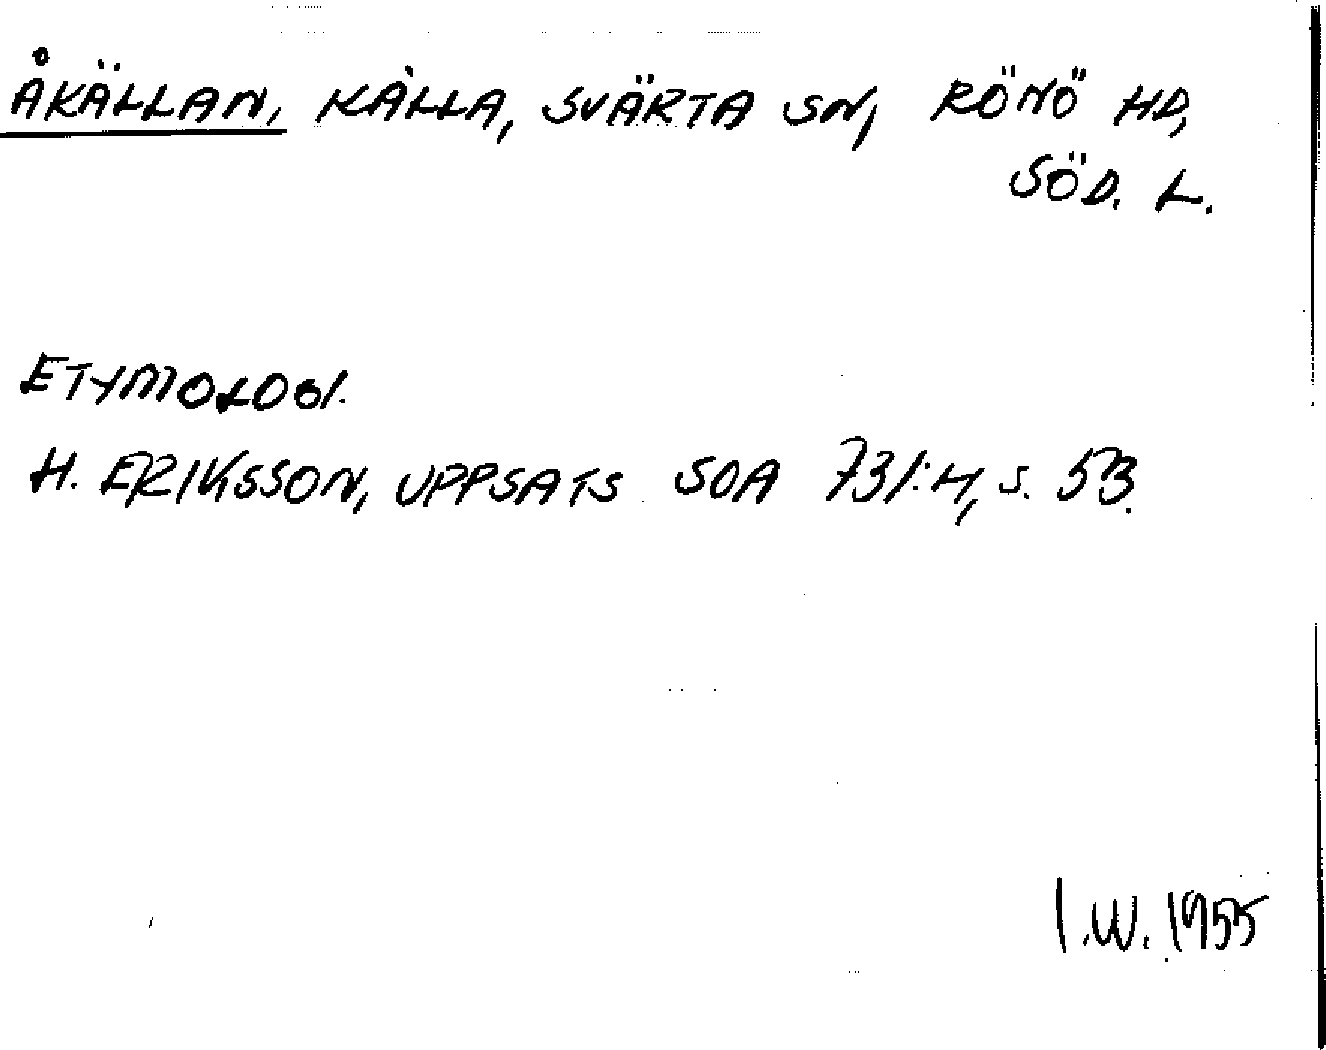 ÅKÄLLAN, KÄLLA, SVÄRTA SN, RÖNÖ HD,
SÖD. L.
ETYMOLOGI.
H. ERIKSSON, UPPSATS SOA 731:4, S. 53.
I.W. 1955